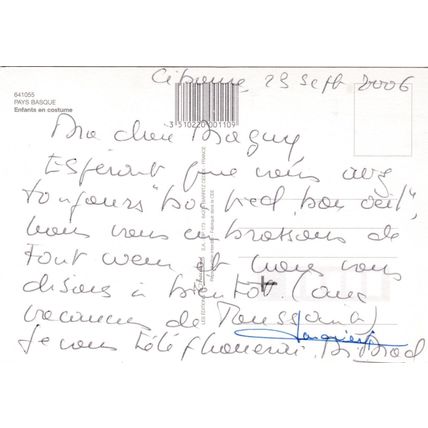 Ciboure, 23 Sept 2006
641055
PAYS BASQUE
Enfants en costume
3 510220 001109
Ma chère Maguy
Espérant que vous avez
toujours "bon pied, bon oeil",
nous vous embrassons de
tout coeur et nous vous
disons à bientôt. (aux
vacances de Toussaint)
Je vous téléphonerai.